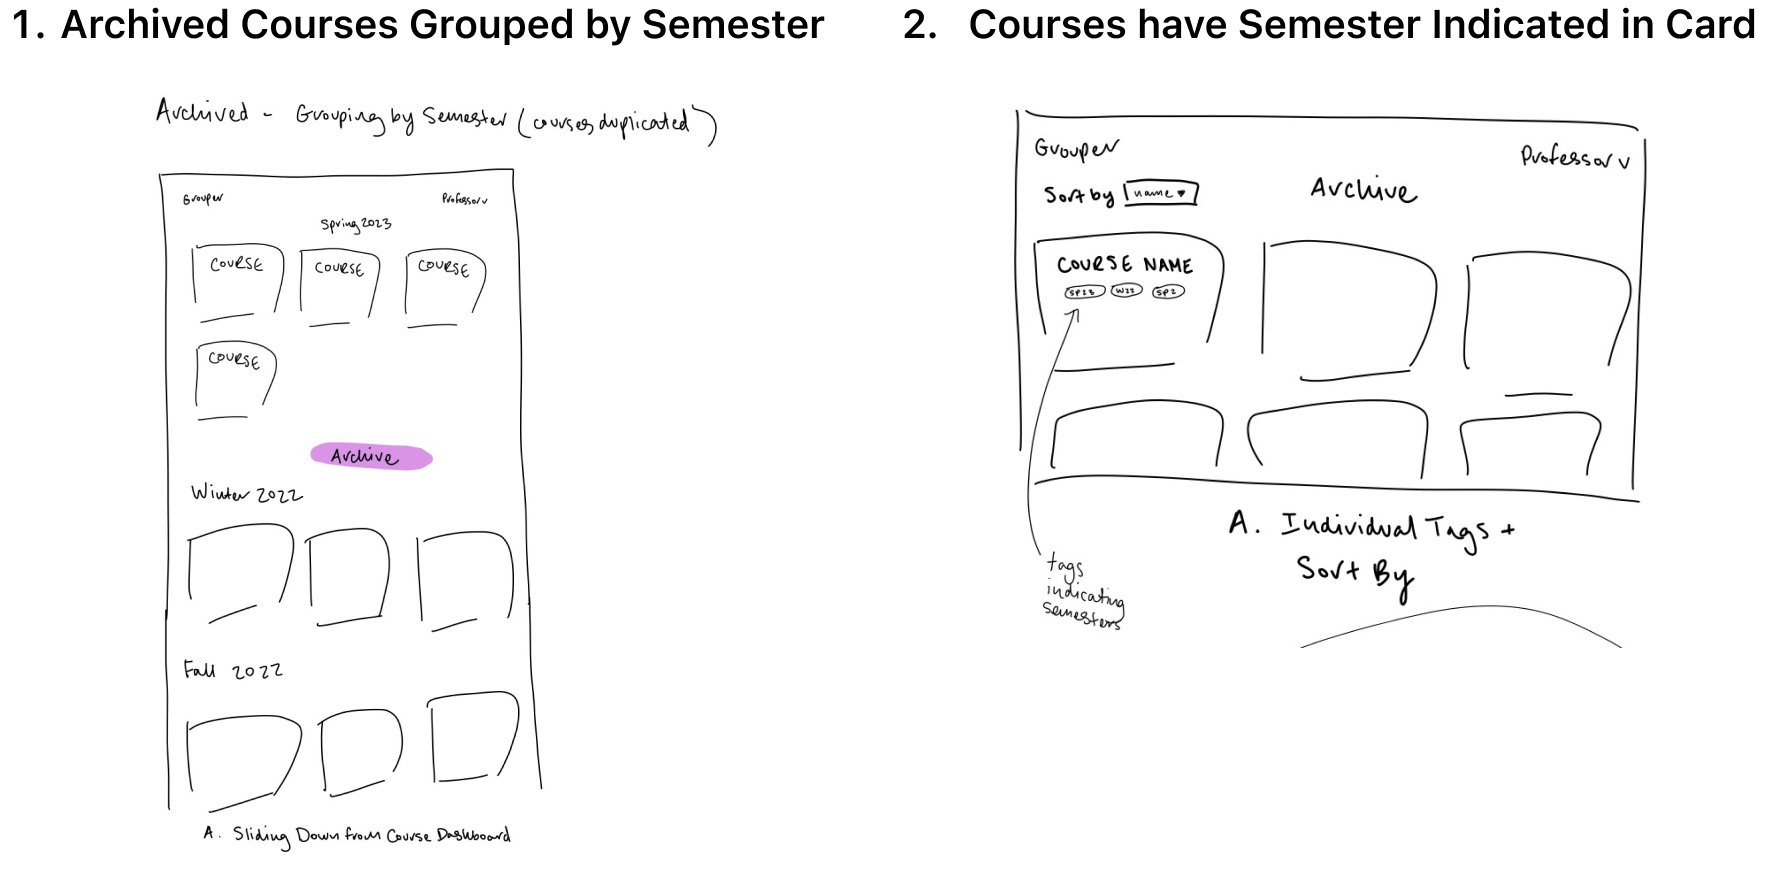 1. Archived Courses Grouped by Semester
Archived - Grouping by Semester (courses duplicated)
Grouper
Professor v
Spring 2023
COURSE
COURSE
COURSE
COURSE
Archive
Winter 2022
Fall 2022
A. Sliding Down from Course Dashboard
2. Courses have Semester Indicated in Card
Grouper
Professor v
Sort by name ▾
Archive
COURSE NAME
SP23 W22 SP2
tags
indicating
semesters
A. Individual Tags +
Sort By